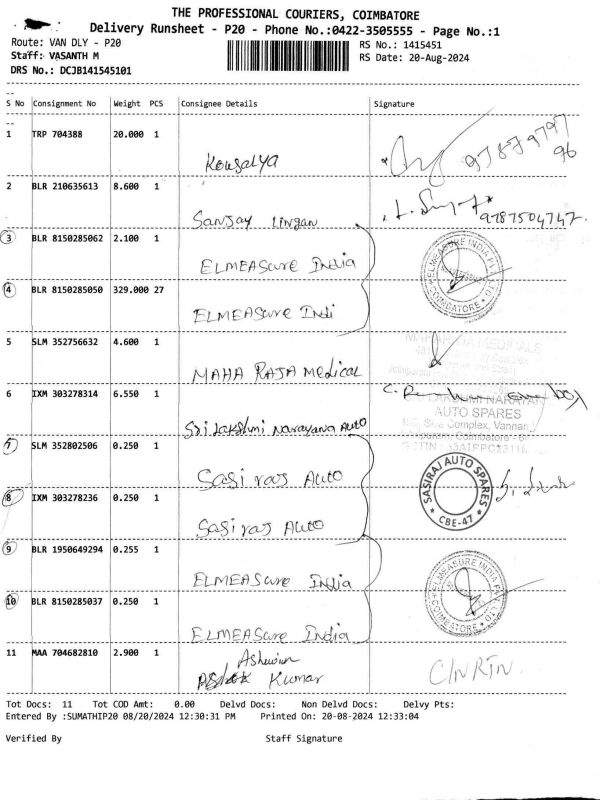 THE PROFESSIONAL COURIERS, COIMBATORE
Delivery Runsheet - P20 - Phone No.:0422-3505555 - Page No.:1
Route: VAN DLY - P20 RS No.: 1415451
Staff: VASANTH M RS Date: 20-Aug-2024
DRS No.: DCJB141545101
S No Consignment No Weight PCS Consignee Details Signature
1 TRP 704388 20.000 1 Kousalya 97879797
96
2 BLR 210635613 8.600 1 Sanjay Lingan 9787504747
3 BLR 8150285062 2.100 1 ELMEASure India
4 BLR 8150285050 329.000 27 ELMEASure Indi
ELMEASURE INDIA PVT LTD
COIMBATORE
5 SLM 352756632 4.600 1 MAHA RAJA Medical
MAHARAJA MEDICALS
6 IXM 303278314 6.550 1 Sri Lakshmi Narayana Auto
LAKSHMI NARAYAN
AUTO SPARES
Complex, Vannan
Coimbatore
7 SLM 352802506 0.250 1 Sasi raj Auto
8 IXM 303278236 0.250 1 Sasi raj Auto
SASIRAJ AUTO SPARES
CBE-47
9 BLR 1950649294 0.255 1 ELMEASure India
10 BLR 8150285037 0.250 1 ELMEASure India
ELMEASURE INDIA PVT LTD
COIMBATORE
11 MAA 704682810 2.900 1 Ashwin
Kumar
Tot Docs: 11 Tot COD Amt: 0.00 Delvd Docs: Non Delvd Docs: Delvy Pts:
Entered By :SUMATHIP20 08/20/2024 12:30:31 PM Printed On: 20-08-2024 12:33:04
Verified By Staff Signature